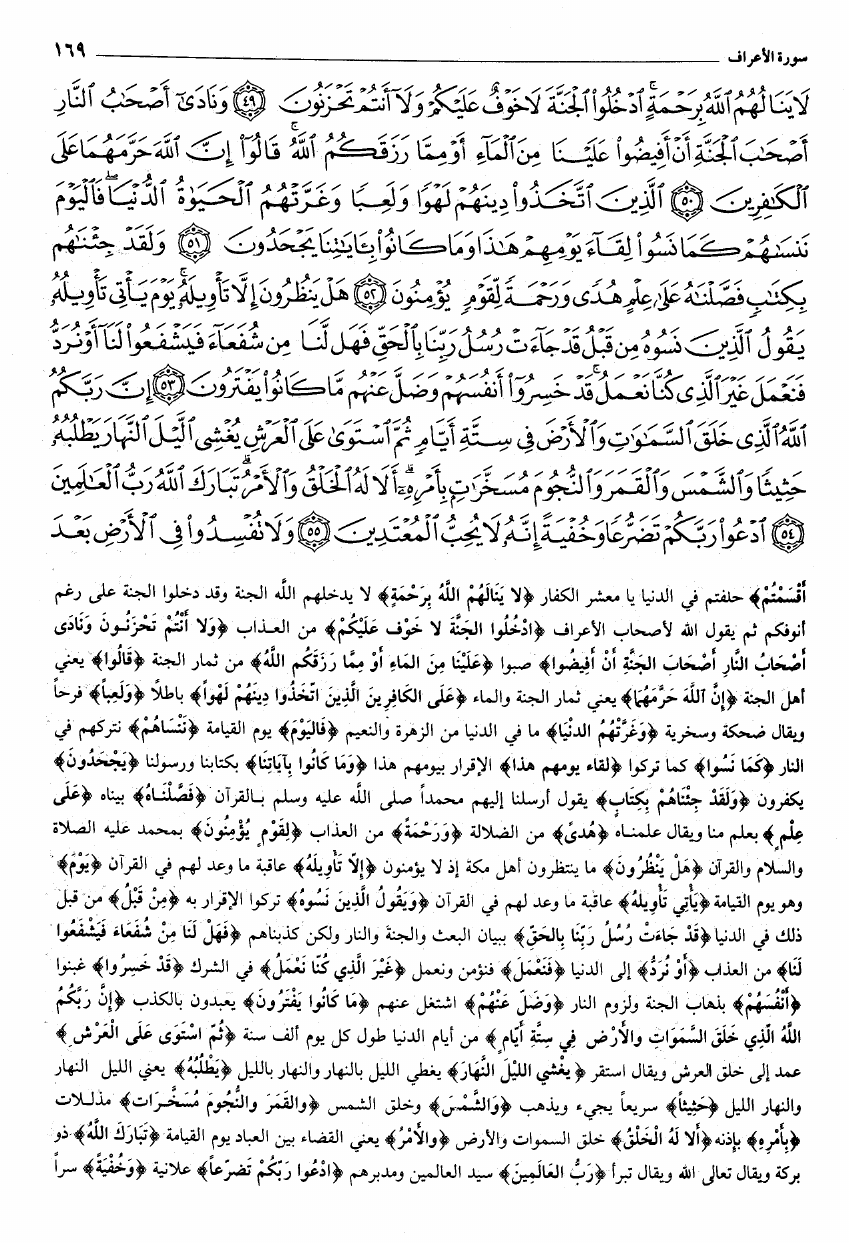 سورة الأعراف ١٦٩
لَا يَنَالُهُمُ ٱللَّهُ بِرَحْمَةٍ ۚ ٱدْخُلُوا۟ ٱلْجَنَّةَ لَا خَوْفٌ عَلَيْكُمْ وَلَآ أَنتُمْ تَحْزَنُونَ ﴿٤٩﴾ وَنَادَىٰٓ أَصْحَٰبُ ٱلنَّارِ
أَصْحَٰبَ ٱلْجَنَّةِ أَنْ أَفِيضُوا۟ عَلَيْنَا مِنَ ٱلْمَآءِ أَوْ مِمَّا رَزَقَكُمُ ٱللَّهُ ۚ قَالُوٓا۟ إِنَّ ٱللَّهَ حَرَّمَهُمَا عَلَى
ٱلْكَٰفِرِينَ ﴿٥٠﴾ ٱلَّذِينَ ٱتَّخَذُوا۟ دِينَهُمْ لَهْوًا وَلَعِبًا وَغَرَّتْهُمُ ٱلْحَيَوٰةُ ٱلدُّنْيَا ۚ فَٱلْيَوْمَ
نَنسَىٰهُمْ كَمَا نَسُوا۟ لِقَآءَ يَوْمِهِمْ هَٰذَا وَمَا كَانُوا۟ بِـَٔايَٰتِنَا يَجْحَدُونَ ﴿٥١﴾ وَلَقَدْ جِئْنَٰهُم
بِكِتَٰبٍ فَصَّلْنَٰهُ عَلَىٰ عِلْمٍ هُدًى وَرَحْمَةً لِّقَوْمٍ يُؤْمِنُونَ ﴿٥٢﴾ هَلْ يَنظُرُونَ إِلَّا تَأْوِيلَهُۥ ۚ يَوْمَ يَأْتِى تَأْوِيلُهُۥ
يَقُولُ ٱلَّذِينَ نَسُوهُ مِن قَبْلُ قَدْ جَآءَتْ رُسُلُ رَبِّنَا بِٱلْحَقِّ فَهَل لَّنَا مِن شُفَعَآءَ فَيَشْفَعُوا۟ لَنَآ أَوْ نُرَدُّ
فَنَعْمَلَ غَيْرَ ٱلَّذِى كُنَّا نَعْمَلُ ۚ قَدْ خَسِرُوٓا۟ أَنفُسَهُمْ وَضَلَّ عَنْهُم مَّا كَانُوا۟ يَفْتَرُونَ ﴿٥٣﴾ إِنَّ رَبَّكُمُ
ٱللَّهُ ٱلَّذِى خَلَقَ ٱلسَّمَٰوَٰتِ وَٱلْأَرْضَ فِى سِتَّةِ أَيَّامٍ ثُمَّ ٱسْتَوَىٰ عَلَى ٱلْعَرْشِ يُغْشِى ٱلَّيْلَ ٱلنَّهَارَ يَطْلُبُهُۥ
حَثِيثًا وَٱلشَّمْسَ وَٱلْقَمَرَ وَٱلنُّجُومَ مُسَخَّرَٰتٍۭ بِأَمْرِهِۦٓ ۗ أَلَا لَهُ ٱلْخَلْقُ وَٱلْأَمْرُ ۗ تَبَارَكَ ٱللَّهُ رَبُّ ٱلْعَٰلَمِينَ
﴿٥٤﴾ ٱدْعُوا۟ رَبَّكُمْ تَضَرُّعًا وَخُفْيَةً ۚ إِنَّهُۥ لَا يُحِبُّ ٱلْمُعْتَدِينَ ﴿٥٥﴾ وَلَا تُفْسِدُوا۟ فِى ٱلْأَرْضِ بَعْدَ
أَقْسَمْتُمْ﴾ حلفتم في الدنيا يا معشر الكفار ﴿لا يَنَالَهُمُ اللَّهُ بِرَحْمَةٍ﴾ لا يدخلهم اللَّه الجنة وقد دخلوا الجنة على رغم
أنوفكم ثم يقول الله لأصحاب الأعراف ﴿ادْخُلُوا الجَنَّةَ لا خَوْف عَلَيْكُمْ﴾ من العـذاب ﴿وَلا أَنْتُمْ تَحْزَنُـونَ وَنَادَى
أَصْحَابُ النَّارِ أَصْحَابَ الجَنَّةِ أَنْ أَفِيضُوا﴾ صبوا ﴿عَلَيْنَا مِنَ المَاءِ أَوْ مِمَّا رَزَقَكُم اللَّهُ﴾ من ثمار الجنة ﴿قَالُوا﴾ يعني
أهل الجنة ﴿إِنَّ اللَّهَ حَرَّمَهُمَا﴾ يعني ثمار الجنة والماء ﴿عَلَى الكَافِرِينَ الَّذِينَ اتَّخَذُوا دِينَهُمْ لَهْواً﴾ باطلاً ﴿وَلَعِباً﴾ فرحاً
ويقال ضحكة وسخرية ﴿وَغَرَّتْهُمُ الدنْيَا﴾ ما في الدنيا من الزهرة والنعيم ﴿فَاليَوْمَ﴾ يوم القيامة ﴿نَنْسَاهُمْ﴾ نتركهم في
النار ﴿كَمَا نَسُوا﴾ كما تركوا ﴿لقاء يومهم هذا﴾ الإقرار بيومهم هذا ﴿وَمَا كَانُوا بِآيَاتِنَا﴾ بكتابنا ورسولنا ﴿يَجْحَدُونَ﴾
يكفرون ﴿وَلَقَدْ جِئْنَاهُمْ بِكِتَابٍ﴾ يقول أرسلنا إليهم محمداً صلى الله عليه وسلم بـالقرآن ﴿فَصَّلْنَـاهُ﴾ بيناه ﴿عَلَى
عِلْمٍ﴾ بعلم منا ويقال علمنـاه ﴿هُدىً﴾ من الضلالة ﴿وَرَحْمَةً﴾ من العذاب ﴿لِقَوْمٍ يُؤْمِنُونَ﴾ بمحمد عليه الصلاة
والسلام والقرآن ﴿هَلْ يَنْظُرُونَ﴾ ما ينتظرون أهل مكة إذ لا يؤمنون ﴿إِلاّ تَأْوِيلَهُ﴾ عاقبة ما وعد لهم في القرآن ﴿يَوْمَ﴾
وهو يوم القيامة ﴿يَأْتِي تَأْوِيلهُ﴾ عاقبة ما وعد لهم في القرآن ﴿وَيَقُولُ الَّذِينَ نَسُوهُ﴾ تركوا الإقرار به ﴿مِنْ قَبْلُ﴾ من قبل
ذلك في الدنيا ﴿قَدْ جَاءَتْ رُسُلُ رَبِّنَا بِالحَقِّ﴾ ببيان البعث والجنة والنار ولكن كذبناهم ﴿فَهَلْ لَنَا مِنْ شُفَعَاءَ فَيَشْفَعُوا
لَنَا﴾ من العذاب ﴿أَوْ نُرَدُّ﴾ إلى الدنيا ﴿فَنَعْمَلَ﴾ فنؤمن ونعمل ﴿غَيْرَ الَّذِي كُنَّا نَعْمَلُ﴾ في الشرك ﴿قَدْ خَسِرُوا﴾ غبنوا
﴿أَنْفُسَهُمْ﴾ بذهاب الجنة ولزوم النار ﴿وَضَلَّ عَنْهُمْ﴾ اشتغل عنهم ﴿مَا كَانُوا يَفْتَرُونَ﴾ يعبدون بالكذب ﴿إِنَّ رَبَّكُمُ
اللَّهُ الَّذِي خَلَقَ السَّمَوَاتِ والأَرْض فِي سِتَّةِ أَيّامٍ﴾ من أيام الدنيا طول كل يوم ألف سنة ﴿ثُمَّ اسْتَوَى عَلَى الْعَرْشِ﴾
عمد إلى خلق العرش ويقال استقر ﴿يغْشي الليْلَ النَّهَارَ﴾ يغطي الليل بالنهار والنهار بالليل ﴿يَطْلُبُهُ﴾ يعني الليل النهار
والنهار الليل ﴿حَثِيثاً﴾ سريعاً يجيء ويذهب ﴿وَالشَّمْسَ﴾ وخلق الشمس ﴿والقَمَرَ والنُّجومَ مُسَخَّـرَات﴾ مذلـلات
﴿بِأَمْرِهِ﴾ بإذنه ﴿أَلا لَهُ الْخَلْقُ﴾ خلق السموات والأرض ﴿والأَمْرُ﴾ يعني القضاء بين العباد يوم القيامة ﴿تَبَارَكَ اللَّهُ﴾ ذو
بركة ويقال تعالى الله ويقال تبرأ ﴿رَبُّ العَالَمِينَ﴾ سيد العالمين ومدبرهم ﴿ادْعُوا رَبّكُمْ تَضرّعاً﴾ علانية ﴿وَخُفْيَةً﴾ سراً